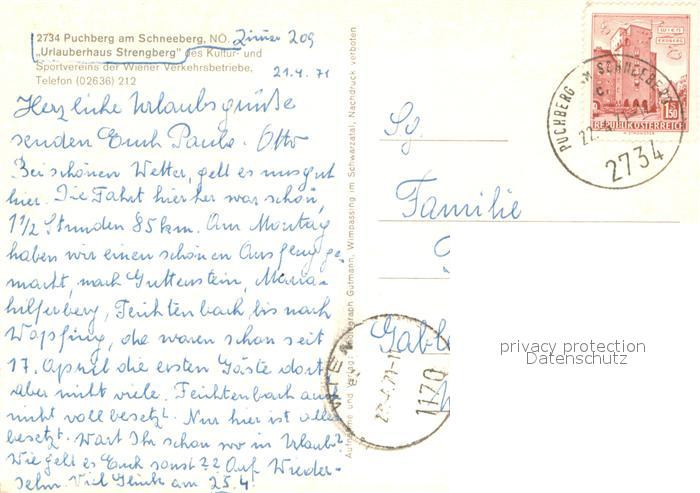 2734 Puchberg am Schneeberg, NÖ. Zimmer 209
„Urlauberhaus Strengberg" des Kultur- und
Sportvereins der Wiener Verkehrsbetriebe,
Telefon (02636) 212
21.4.71
Herzliche Urlaubsgrüße
senden Euch Paula. Otto
Bei schönen Wetter, geht es uns gut
hier. Die Fahrt hierher war schön,
1 1/2 Stunden 85 km. Am Montag
haben wir einen schönen Ausflug ge-
macht, nach Guttenstein, Maria-
hilferberg, Feichtenbach, bis nach
Wopfing, die waren schon seit
17. April die ersten Gäste dort
aber nicht viele. Feichtenbach auch
nicht voll besetzt. Nur hier ist alles
besetzt. Wart Ihr schon wo in Urlaub?
Wie geht es Euch sonst?? Auf Wieder-
sehn. Viel Glück am 25.4!
Aufnahme und Verlag: Gutmann, Wimpassing im Schwarzatal. Nachdruck verboten
Familie
Gabl
WIEN
EICHBERG
1.50
REPUBLIK ÖSTERREICH
PUCHBERG AM SCHNEEBERG
2734
WIEN
1170
privacy protection
Datenschutz